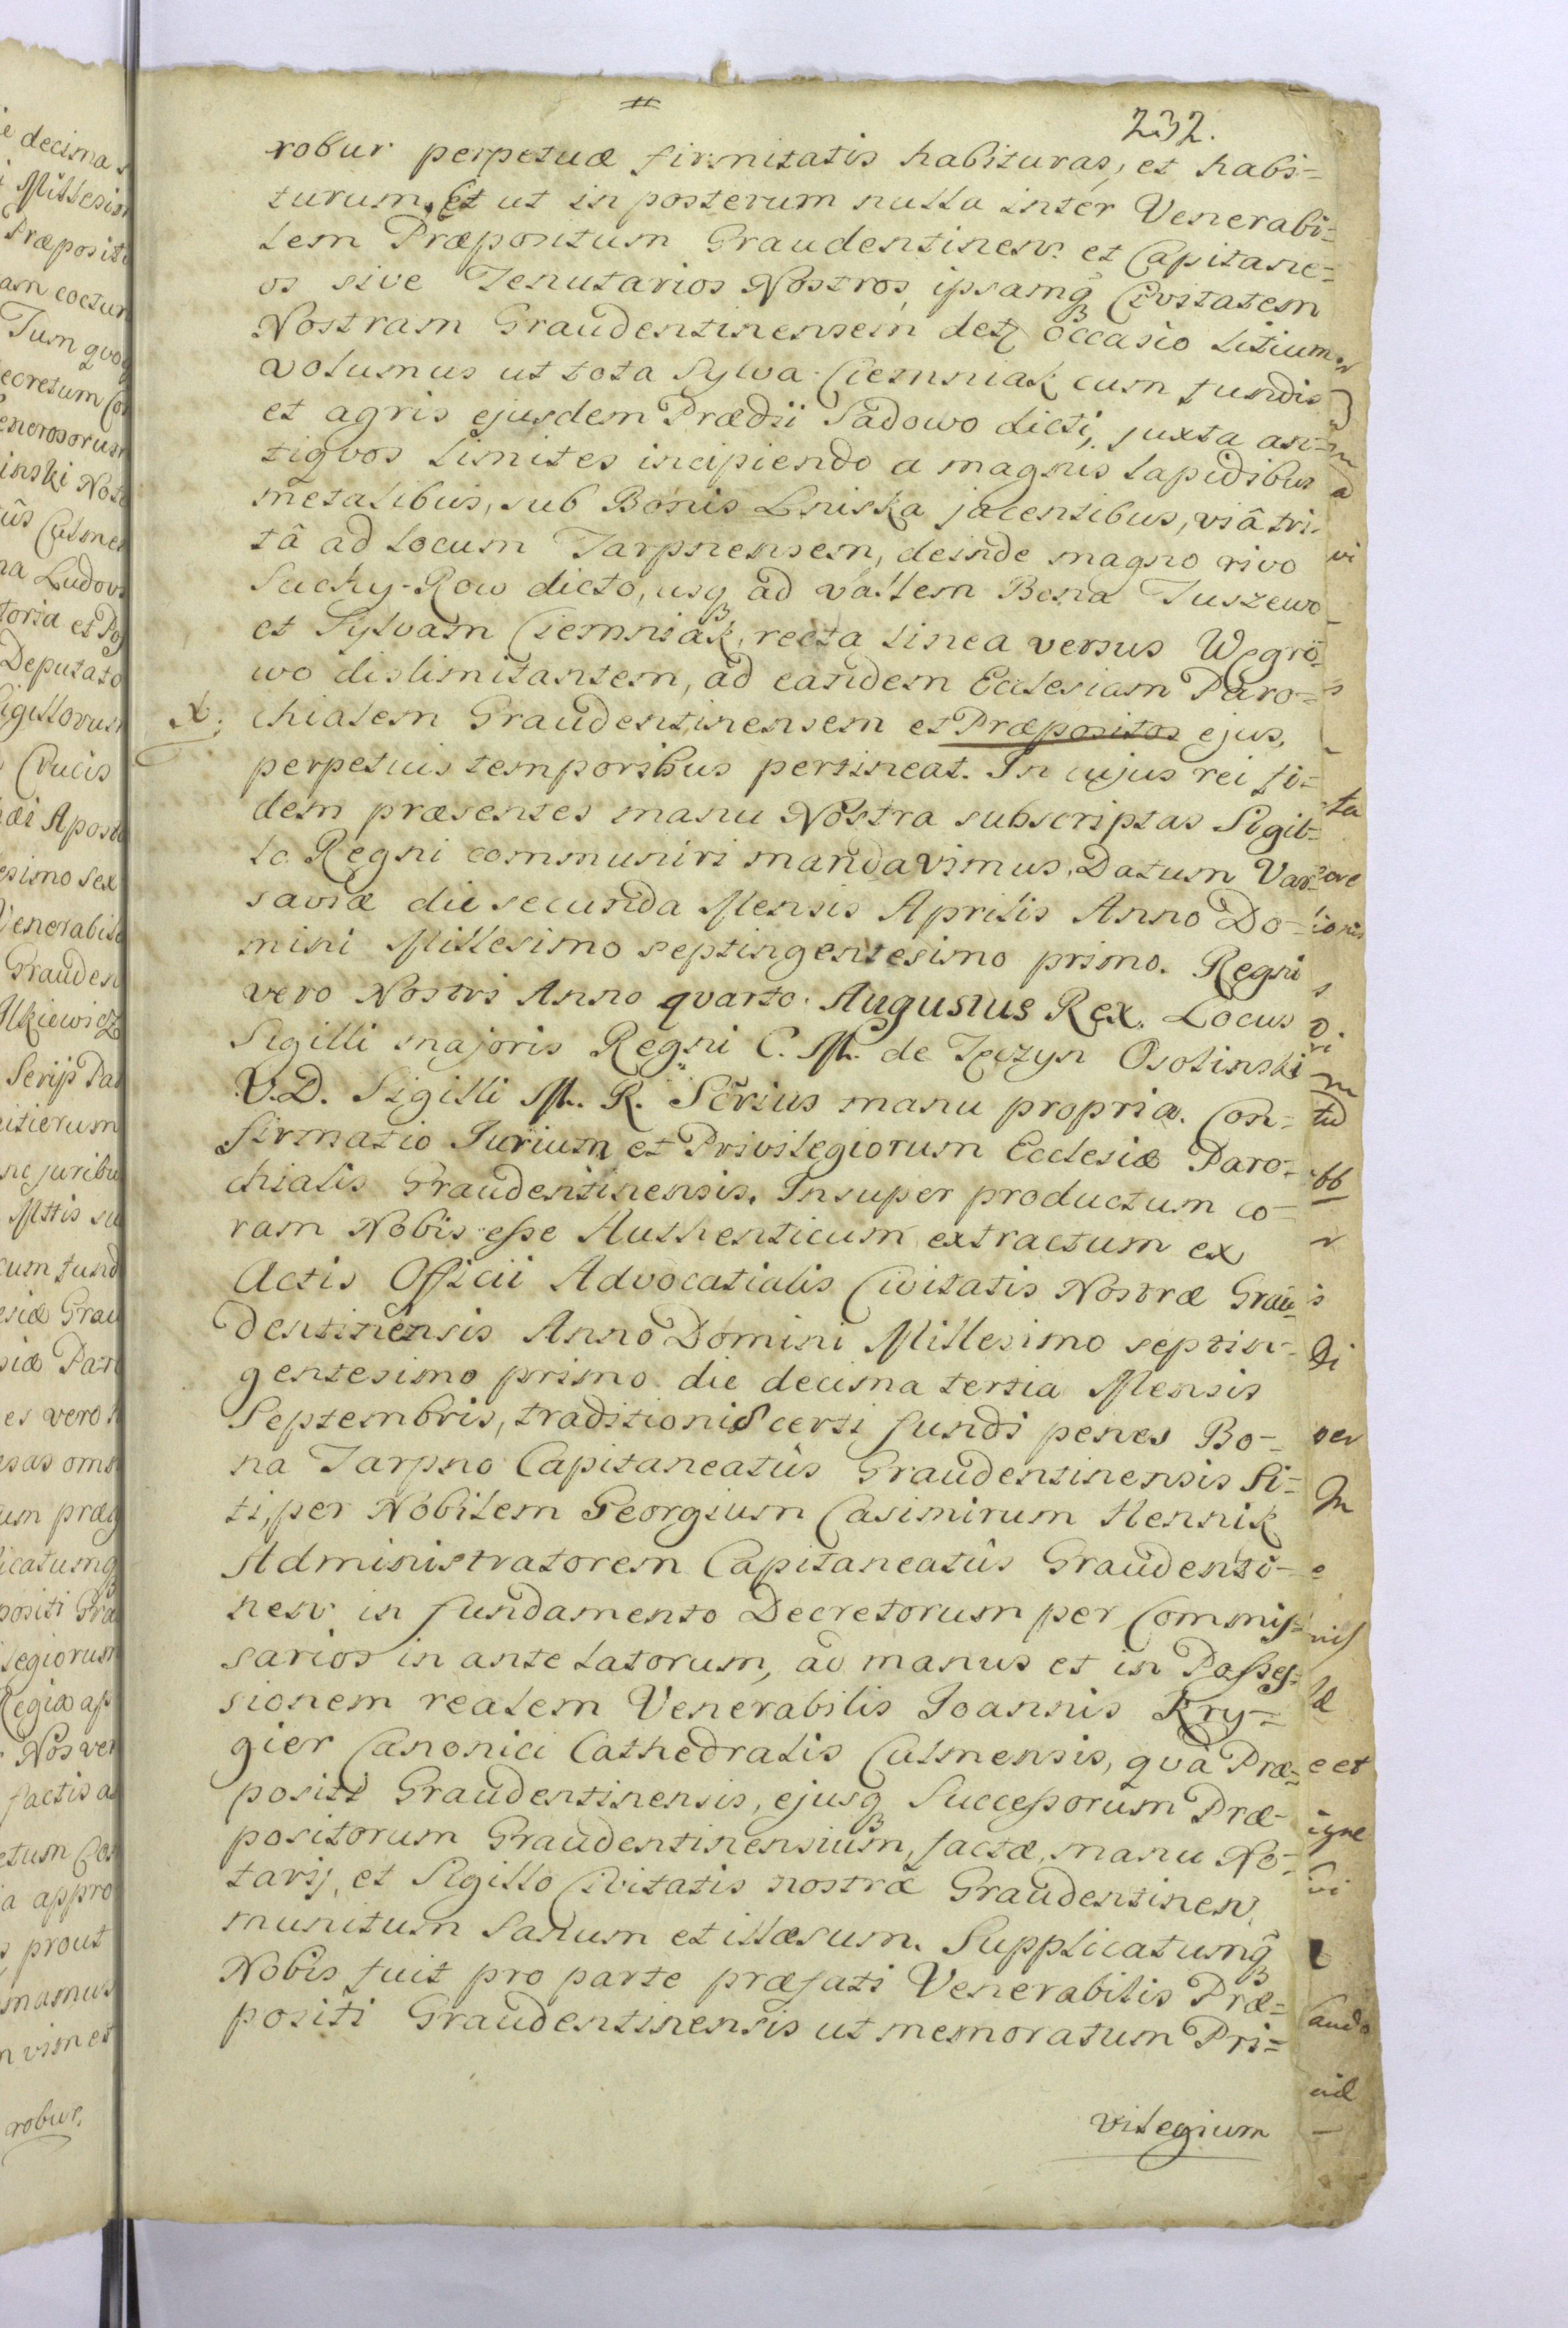 232.
robur perpetuæ firmitatis habituras, et habi-
turum. Et ut in posterum nulla inter Venerabi-
lem Præpositum Graudentinens: et Capitane-
os sive Tenutarios Nostros, ipsamq3 Civitatem
Nostram Graudentinensem detur occasio litium
volumus ut tota Sylva Ciemniak cum fundis
et agris ejusdem Prædii Sadowo dicti, juxta an-
tiqvos limites incipiendo a magnis lapidibus
metalibus, sub Bonis Lniska jacentibus, viâ tri-
tâ ad locum Tarpnensem, deinde magno rivo
Suchy-Row dicto, usq3 ad vallem Bona Tuszewo
et Sylvam Ciemniak, recta linea versus Węgro-
wo dislimitantem, ad eandem Ecclesiam Paro-
chialem Graudentinensem et Præpositos ejus,
perpetuis temporibus pertineat. In cujus rei fi-
dem præsentes manu Nostra subscriptas Sigil-
lo Regni communiri mandavimus. Datum Var-
saviæ die secunda Mensis Aprilis Anno Do-
mini Millesimo septingentesimo primo. Regni
vero Nostri Anno qvarto. Augustus Rex. Locus
Sigilli majoris Regni C. M. de Tęczyn Osolinski
V.D. Sigilli M. R. Sĕrius manu propria. Con-
firmatio Jurium et Privilegiorum Ecclesiæ Paro-
chialis Graudentinensis. Insuper productum co-
ram Nobis esse Authenticum extractum ex
Actis Officii Advocatialis Civitatis Nostræ Grau-
dentinensis Anno Domini Millesimo septin-
gentesimo primo die decima tertia Mensis
Septembris, traditionis certi fundi penes Bo-
na Tarpno Capitaneatûs Graudentinensis Si-
ti, per Nobilem Georgium Casimirum Hennik
Administratorem Capitaneatûs Graudenti-
nens in fundamento Decretorum per Commis-
sarios in ante latorum, ad manus et in Posses-
sionem realem Venerabilis Joannis Kry-
gier Canonici Cathedralis Culmensis, qvâ Præ-
positi Graudentinensis, ejusq3 Successorum Præ-
positorum Graudentinensium, factæ, manu No-
tarij, et Sigillo Civitatis nostræ Graudentinens,
munitum Sanum et illæsum. Supplicatumq3
Nobis fuit pro parte præfati Venerabilis Præ-
positi Graudentinensis ut memoratum Pri-
vilegium